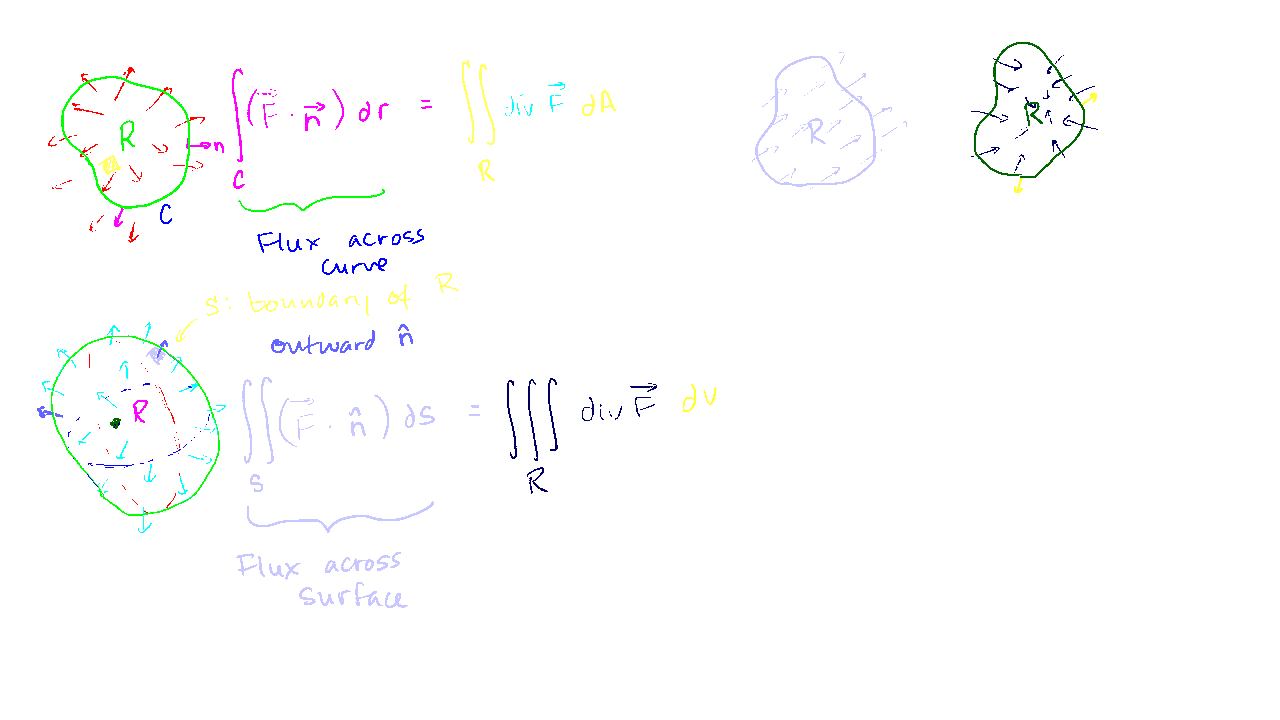 R
n
C
∫_C (F⃗ · n⃗) dr = ∬_R div F⃗ dA
Flux across
curve
R
R
S: boundary of R
outward n̂
n̂
R
∬_S (F⃗ · n̂) ds = ∭_R div F⃗ dv
Flux across
surface